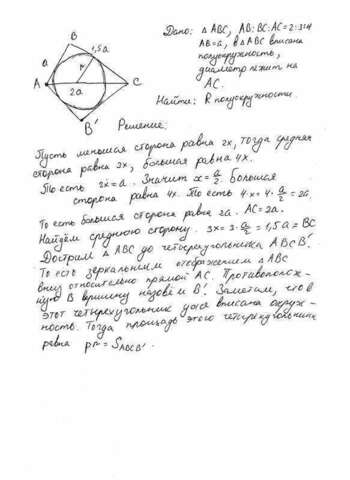 Дано: △ ABC, AB:BC:AC=2:3:4
AB=a, в △ABC вписана
полуокружность,
диаметр лежит на
AC.
Найти: R полуокружности.
B
1,5a
a
r
A
C
2a
B'
Решение:
Пусть меньшая сторона равна 2x, тогда средняя
сторона равна 3x, большая равна 4x.
То есть 2x=a. Значит x=a/2. Большая
сторона равна 4x. То есть 4·x=4·a/2=2a.
То есть большая сторона равна 2a. AC=2a.
Найдём среднюю сторону. 3x=3·a/2=1,5a=BC
Достроим △ABC до четырехугольника ABCB'.
То есть зеркальным отображением △ABC
вниз относительно прямой AC. Противополож-
ную B вершину назовём B'. Заметим, что в
этот четырехугольник уже вписана окруж-
ность. Тогда площадь этого четырехугольника
равна pr=S ABCB'